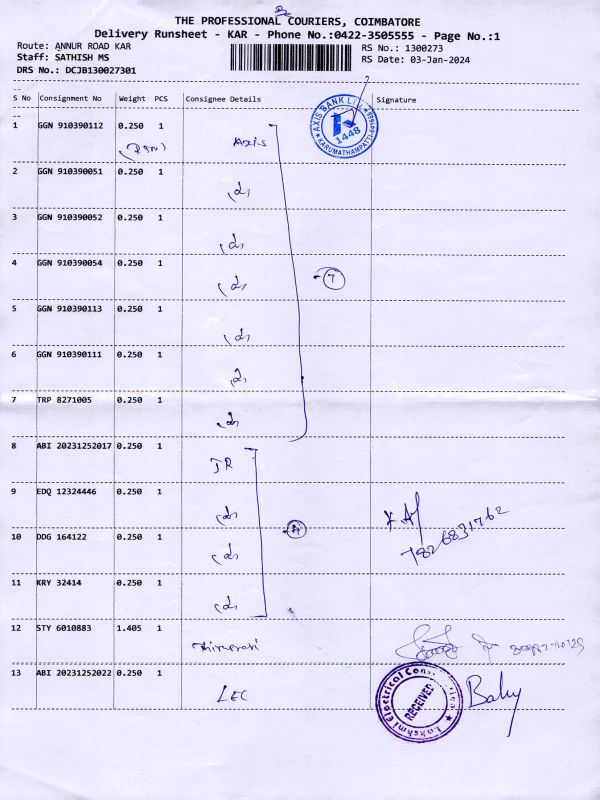 THE PROFESSIONAL COURIERS, COIMBATORE
Delivery Runsheet - KAR - Phone No.:0422-3505555 - Page No.:1
Route: ANNUR ROAD KAR
RS No.: 1300273
Staff: SATHISH MS
RS Date: 03-Jan-2024
DRS No.: DCJB130027301
S No Consignment No Weight PCS Consignee Details Signature
1 GGN 910390112 0.250 1 Axis
AXIS BANK LTD
1448
KARUMATHAMPATTI
2 GGN 910390051 0.250 1
3 GGN 910390052 0.250 1
4 GGN 910390054 0.250 1
7
5 GGN 910390113 0.250 1
6 GGN 910390111 0.250 1
7 TRP 8271005 0.250 1
8 ABI 20231252017 0.250 1
JR
9 EDQ 12324446 0.250 1
10 DDG 164122 0.250 1
11 KRY 32414 0.250 1
12 STY 6010883 1.405 1
13 ABI 20231252022 0.250 1
LEC
Lakshmi Electrical
RECEIVED